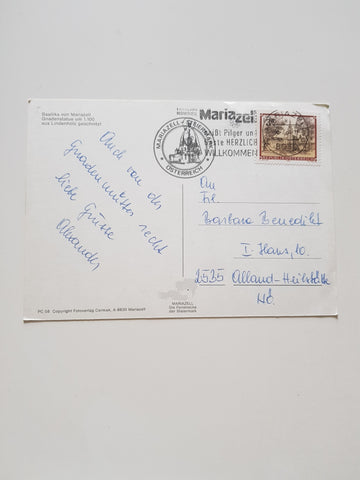 Basilika von Mariazell
Gnadenstatue um 1.100
aus Lindenholz geschnitzt
Mariazell
Pilger und
HERZLICH
WILLKOMMEN
MARIAZELL / STEIERMARK
ÖSTERREICH
Auch von der
Gnadenmutter recht
liebe Grüsse
Alexander
An
Frl.
Barbara Benedikt
I. Haus, 10.
2535 Alland-Heilstätte
NÖ.
PC 08 Copyright Fotoverlag Cermak, A-8630 Mariazell
MARIAZELL
Die Fenstecke
der Steiermark